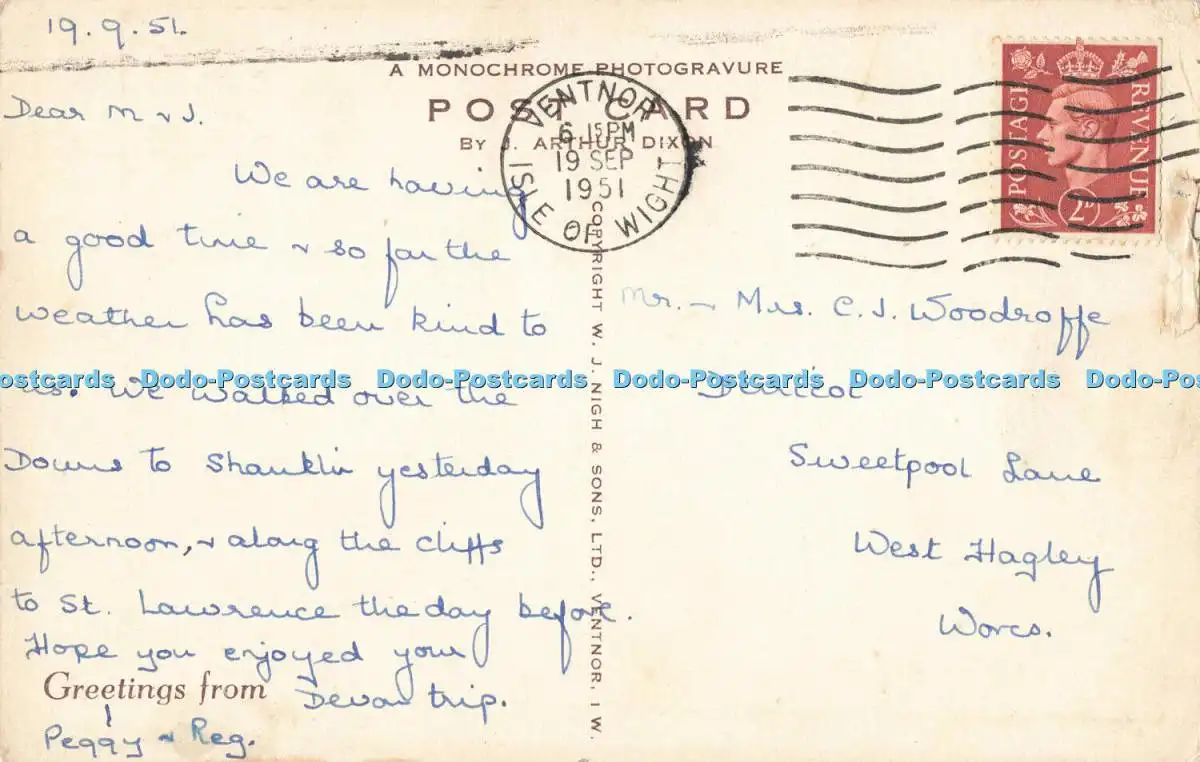 19.9.51.
A MONOCHROME PHOTOGRAVURE
POST CARD
BY J. ARTHUR DIXON
VENTNOR
6 15 PM
19 SEP
1951
ISLE OF WIGHT
POSTAGE
REVENUE
2D
Dear M & J.
We are having
a good time & so far the
weather has been kind to
us. We walked over the
Downs to Shanklin yesterday
afternoon, & along the cliffs
to St. Lawrence the day before.
Hope you enjoyed your
Devon trip.
Greetings from
Peggy & Reg.
COPYRIGHT W. J. NIGH & SONS, LTD., VENTNOR, I.W.
Mr. & Mrs. C. J. Woodroffe
Sweetpool Lane
West Hagley
Worcs.
ostcards Dodo-Postcards Dodo-Postcards Dodo-Postcards Dodo-Postcards Dodo-P